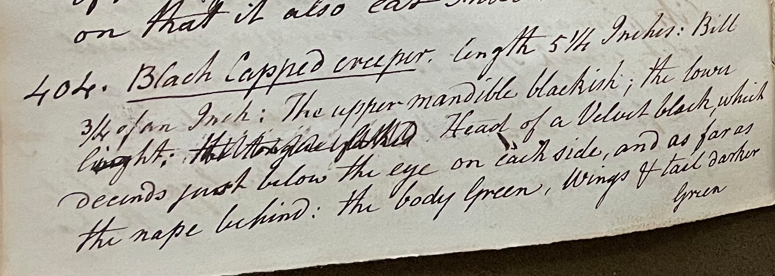 on that it also eat
404. Black Capped creeper. length 5 1/4 Inches: Bill
3/4 of an Inch: The upper mandible blackish; the lower
Head of a Velvet black, which
decends just below the eye on each side, and as far as
the nape behind: the body Green, Wings & tail darker
Green